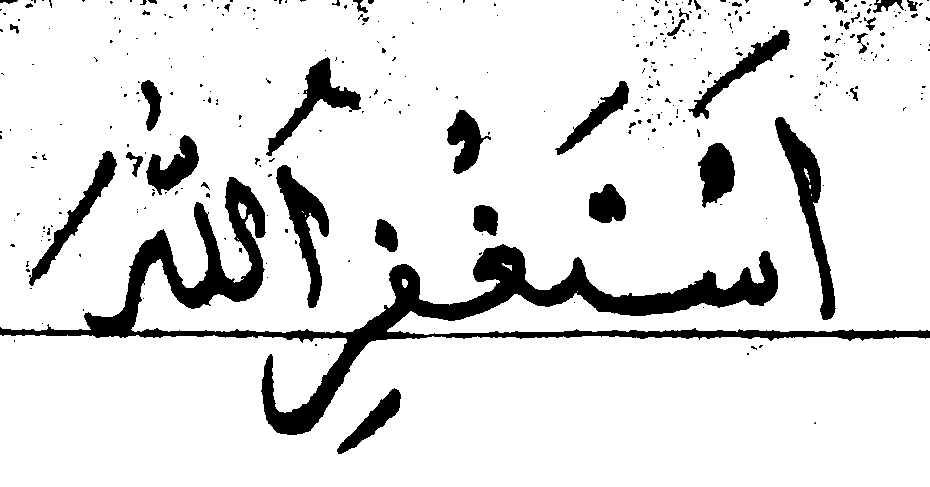 اَسْتَغْفِرُ اللّٰهَ